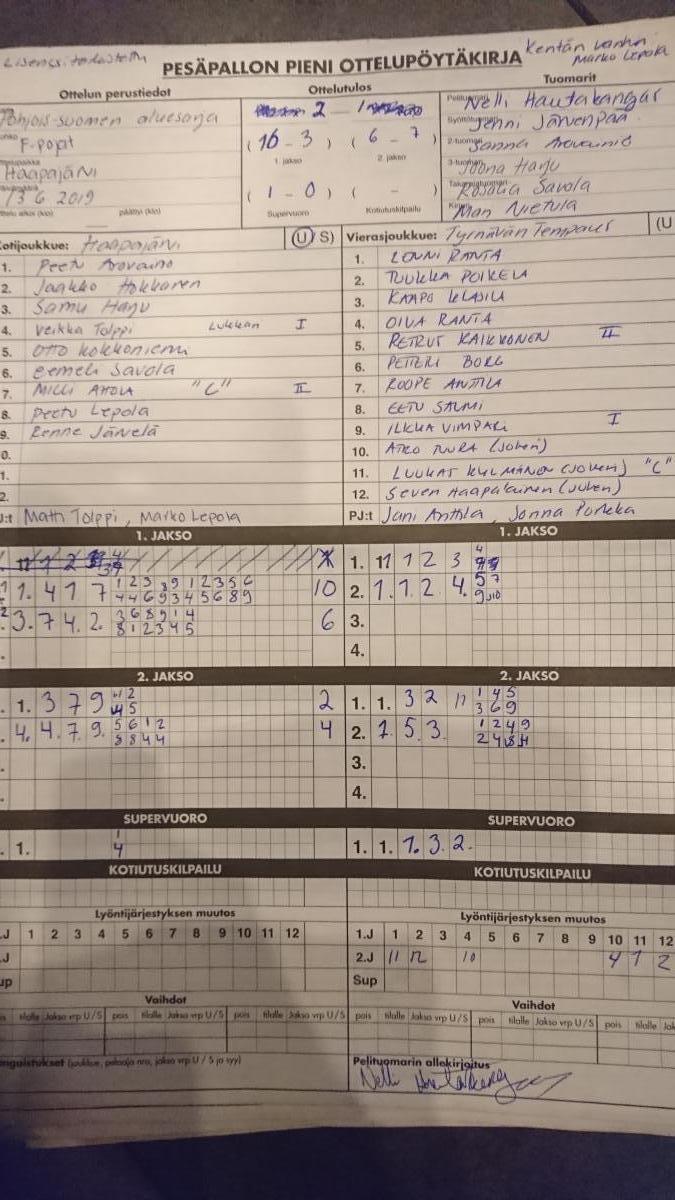 Lisenssi tarkastettu
Kentän vanhin
Marko Lepola
PESÄPALLON PIENI OTTELUPÖYTÄKIRJA
Ottelun perustiedot
Ottelutulos
Tuomarit
Pohjois-suomen aluesarja
2 - 1
Nelli Hautakangas
F-pojat
(16 - 3) (6 - 7)
Jenni Järvenpää
1. jakso 2. jakso
Sanna Arovainio
Haapajärvi
Joona Harju
13 6 2019
(1 - 0) ( - )
Savola
Supervuoro Kotiutuskilpailu
Nietula
Kotijoukkue: Haapajärvi (U/S)
Vierasjoukkue: Tyrnävän Tempaus (U
1. Peetu Arovainio
2. Jaakko Hokkanen
3. Samu Harju
4. Veikka Tolppi Lukkari I
5. Otto Kokkoniemi
6. Eemeli Savola
7. MILLI AHOLA "C" II
8. Peetu Lepola
9. Renne Järvelä
1. LENNI RANTA
2. TUUKKA POIKELA
3. KAAPO
4. OIVA RANTA
5. PETRUS KAIKKONEN II
6. PETTERI BORG
7. ROOPE ANTTILA
8. EETU SALMI
9. ILKKA VIMPARI I
10. (jokeri)
11. (jokeri) "C"
12. Haapalainen (jokeri)
PJ:t Matti Tolppi, Marko Lepola
PJ:t Jani Anttila, Jonna
1. JAKSO
1. JAKSO
1. 11 1 2 3
1. 4 1 7 1 2 3 8 9 1 2 3 5 6 10
4 4 6 9 3 4 5 6 8 9
2. 1. 1. 2 4.
3. 7 4. 2. 3 6 8 9 1 4 6
8 1 2 3 4 5
3.
4.
2. JAKSO
2. JAKSO
1. 3 7 9 2
1. 1. 3 2 11 1 4 5
3 6 9
4. 4. 7. 9. 5 6 1 2 4
8 8 4 4
2. 1. 5. 3. 1 2 4 9
3.
4.
SUPERVUORO
SUPERVUORO
1. 1
4
1. 1. 1. 3. 2.
KOTIUTUSKILPAILU
KOTIUTUSKILPAILU
Lyöntijärjestyksen muutos
Lyöntijärjestyksen muutos
1.J 1 2 3 4 5 6 7 8 9 10 11 12
1.J 1 2 3 4 5 6 7 8 9 10 11 12
2.J 11 12 10 4 1 2
Sup
Vaihdot
Vaihdot
tilalle Jakso vrp U/S pois tilalle Jakso vrp U/S pois tilalle Jakso vrp U/S
pois tilalle Jakso vrp U/S pois tilalle Jakso vrp U/S pois tilalle
Rangaistukset (joukkue, pelaaja nro, jakso vrp U / S ja syy)
Pelituomarin allekirjoitus
Nelli Hautakangas